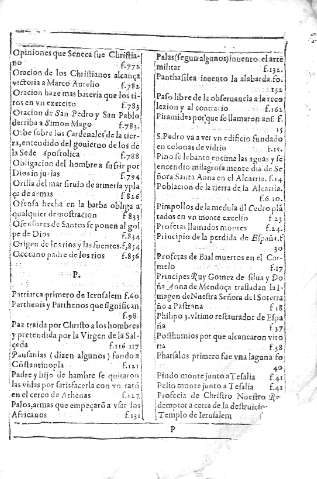 Opiniones que Seneca fue Christia-
no f.772.
Oracion de los Christianos alcança
victoria a Marco Aurelio f.782
Oracion haze mas bateria que los ti-
ros en vn exercito f.783
Oracion de San Pedro y San Pablo
derriba a Simon Mago f.783.
Orbe sobre los Cardenales de la tier-
ra, entendido del gouierno de los de
la Sede Apostolica f.788
Obligacion del hombre a sufrir por
Dios injurias f.794
Orilla del mar siruio de armeria y pla
ça de armas f.826
Ofensa hecha en la barba obliga a
qualquier demostracion f.833
Ofensores de Santos se ponen al gol
pe de Dios f.834
Origen de los rios y las fuentes. f.834
Occeano padre de los rios f.836
P.
Patriarca primero de Ierusalem f.40.
Parthenis y Parthenos que significan
f.98
Paz traida por Christo a los hombres
y pretendida por la Virgen de la Sal-
ceda f.116 117
Pausanias (dizen algunos) fundo a
Costantinopla f.121
Padre y hijo de hambre se quitaron
las vidas por satisfacerla con vn ratō
en el cerco de Athenas f.127.
Palos, armas que empeçarō a vsar los
Africanos f.131
Palas (segun algunos) inuento el arte
militar f.132.
Panthasilea inuento la alabarda fo.
132.
Paso libre de la obseruancia a la recō
lezion y al contrario f.162
Piramides por que se llamaron ansi f.
15
S. Pedro va a ver vn edificio fundado
en colunas de vidrio f.12.
Pino se leuanto encima las aguas y se
encendio milagrosamente dia de Se
ñora Santa Anna en el Alcarria. f.14
Poblacion de la tierra de la Alcarria.
f.6.10.
Pimpollos de la medula del Cedro plā
tados en vn monte excelso f.23
Profetas llamados montes f.24.
Principio de la perdida de España. f.
30
Profetas de Baal muertos en el Car-
melo f.17
Principes Ruy Gomez de Silua y Do-
ña Anna de Mendoça trasladan la I-
magen de Nuestra Señora del Soterra
ño a Pastrana f.18
Philipo 3. vltimo restaurador de Espa
ña f.37
Posthumios por que alcançaron vito
ria f.38
Pharsalos primero fue vna laguna fo
40.
Pindo monte junto a Tesalia f.41
Pelio monte junto a Tesalia f.41
Profecia de Christo Nuestro Re-
demptor a cerca de la destruicion
Templo de Ierusalem
P